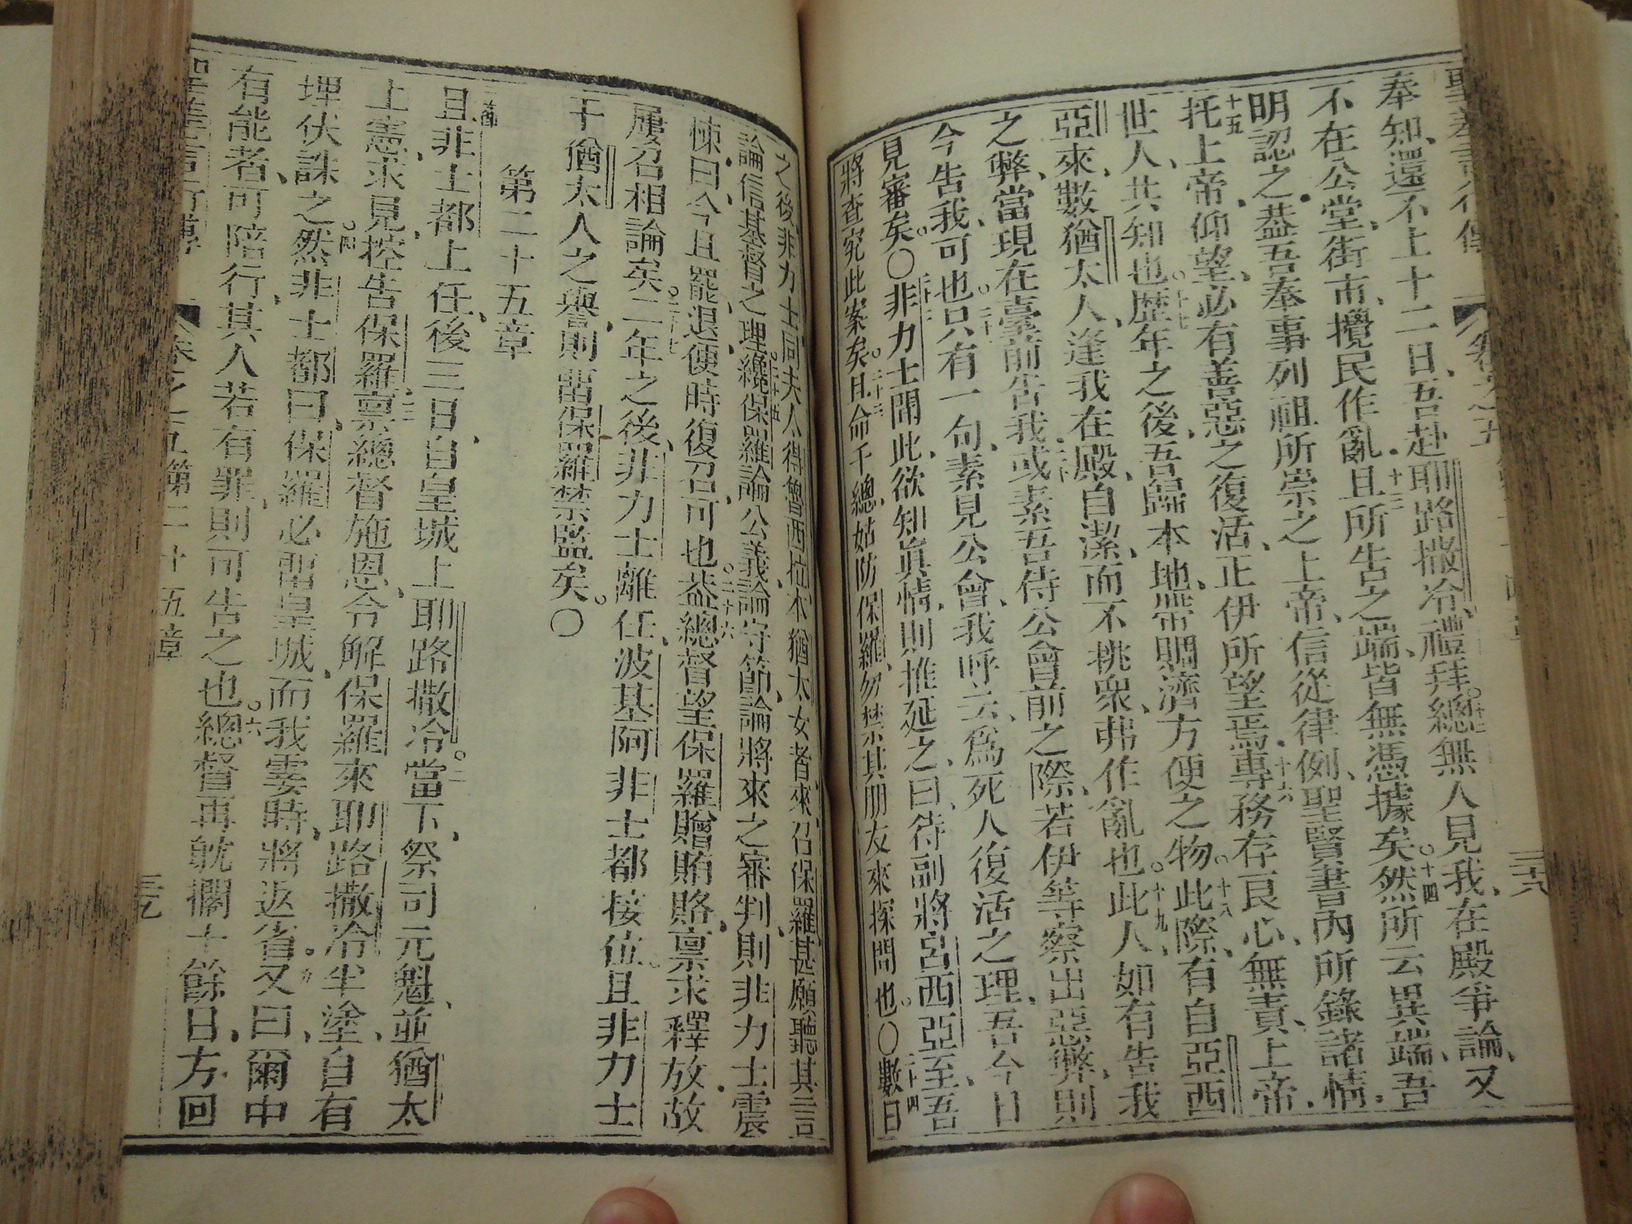 奉知、還不上十二日、吾赴耶路撒冷、禮拜。十二總無人見我、在殿爭論、又
不在公堂、街市、攪民作亂。十三且所告之端、皆無憑據矣。十四然所云異端、吾
明認之。蓋吾奉事列祖所崇之上帝、信從律例、聖賢書內所錄諸情。
十五托上帝、仰望、必有善惡之復活、正伊所望焉。十六專務存良心、無責、上帝、
世人、共知也。十七歷年之後、吾歸本地、帶賙濟方便之物。十八此際、有自亞西
亞來、數猶太人、逢我在殿、自潔、而不挑眾、弗作亂也。十九此人、如有告我
之弊、當現在臺前告我。二十或素吾侍公會前之際、若伊等察出惡弊、則
今告我、可也。只有一句、素見公會、我呼云、為死人復活之理、吾今日
見審矣。〇二十二非力士聞此、欲知真情、則推延之、曰、待副將呂西亞至、吾
將查究此案矣。二十三且命千總、姑防保羅、勿禁其朋友來探問也。〇二十四數日
之後、非力士同夫人得魯西拉本猶太女者來、召保羅、甚願聽其言
論信基督之理。二十五纔保羅論公義、論守節、論將來之審判、則非力士震
悚曰、今且罷退、便時復召、可也。二十六蓋總督望保羅贈賄賂、稟求釋放、故
屢召相論矣。二十七二年之後、非力士離任、波基阿非士都接位。且非力士
干猶太人之輿譽、則留保羅禁監矣。〇
第二十五章
且非士都上任、後三日、自皇城上耶路撒冷。二當下、祭司元魁、並猶太
上憲、求見、控告保羅。三稟總督施恩、令解保羅來耶路撒冷、半塗、自有
埋伏誅之。四然非士都曰、保羅必留皇城、而我霎時、將返省。五又曰、爾中
有能者、可陪行、其人若有罪、則可告之也。六總督再躭擱十餘日、方回
第二十五章